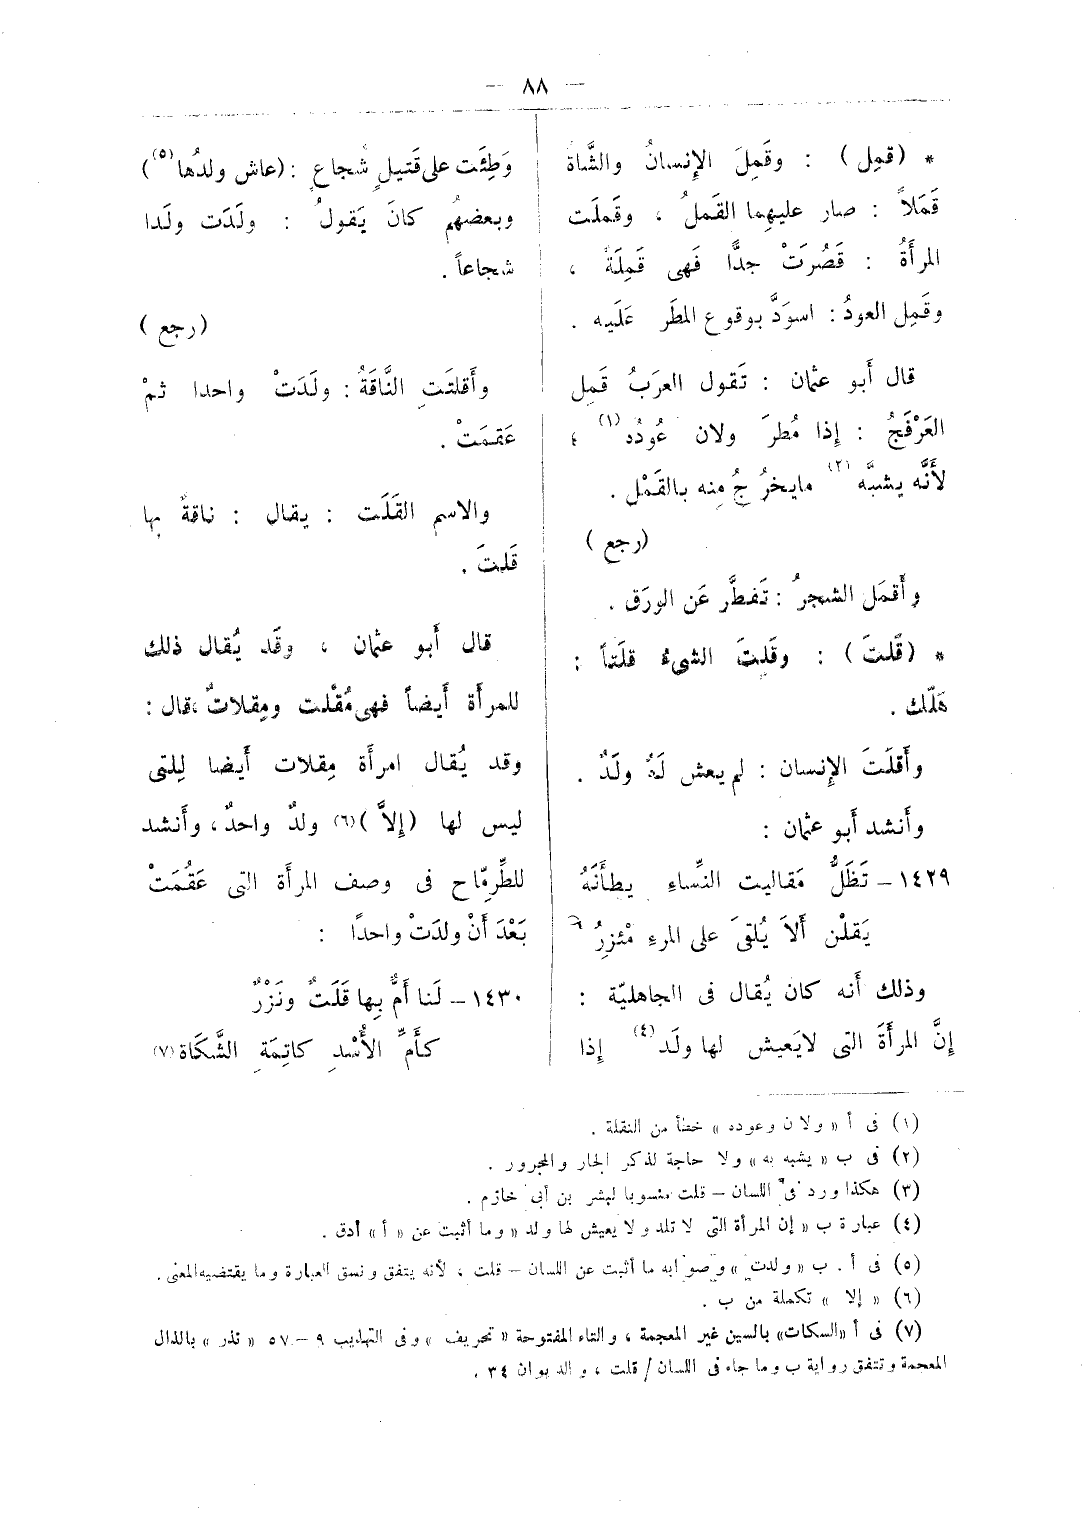 — ٨٨ —
* (قمِل) : وقَمِلَ الإِنسانُ والشَّاة
قَمَلاً : صار عليهِما القَملُ ، وقَملَت
المرأَةُ : قَصُرَتْ جدًّا فَهى قَمِلَة ،
وقَمِل العودُ : اسوَدَّ بوقوع المطَر عَلَيه .
قال أَبو عثمان : تَقول العرَبُ قَمِل
العَرْفَجُ : إِذا مُطرَ ولان عُودُه (١) ،
لأَنَّه يشبَّه (٢) مايخرُجُ مِنه بالقَمْل .
(رجع)
وأَقمَل الشجرُ : تَفطَّر عَن الورَق .
* (قَلتَ) : وقَلِتَ الشىءُ قلَتاً :
هَلَك .
وأَقلَتَ الإِنسان : لم يعش لَهُ ولَدٌ .
وأَنشد أَبو عثمان :
١٤٢٩ – تَظَلُّ مَقاليت النسِّاء يطأْنَهُ
يَقلْن أَلاَ يُلقىَ على المرءِ مْئزِرُ
وذلك أَنه كان يُقال فى الجاهليّة :
إِنَّ المرأَةَ التى لايَعيش لها ولَد (٤) إِذا
وَطِئَت على قَتيلٍ شُجاعٍ : (عاش ولدُها (٥))
وبعضهُم كانَ يَقولُ : ولَدَت ولَدا
شجاعاً .
(رجع)
وأَقلتَتِ النَّاقَةُ : ولَدَتْ واحدا ثمْ
عَقمَتْ .
والاسم القَلَت : يقال : ناقةٌ بها
قَلتَ .
قال أَبو عثمان ، وقَد يُقال ذلك
للمرأَة أَيضاً فهى مُقْلت ومِقلاتٌ ،قال :
وقد يُقال امرأَة مِقلات أَيضا لِلتى
ليس لها (إِلاَّ) (٦) ولدٌ واحدٌ ، وأَنشد
للطِّرِمّاح فى وصف المرأَة التى عَقُمَتْ
بَعْدَ أَنْ ولدَتْ واحدًا :
١٤٣٠ – لَنا أُمٌّ بِها قَلَتٌ ونَزْرٌ
كأُمِّ الأُسْدِ كاتِمَةِ الشَّكَاة (٧)
(١) فى أ « ولان وعوده » خطأ من النقلة .
(٢) فى ب « يشبه به » ولا حاجة لذكر الجار والمجرور .
(٣) هكذا ورد فى اللسان – قلت منسوبا لبشر بن أبى خازم .
(٤) عبارة ب « إن المرأة التى لا تلد ولا يعيش لها ولد « وما أثبت عن « أ » أدق .
(٥) فى أ . ب « ولدت » وصوابه ما أثبت عن اللسان – قلت ، لأنه يتفق ونسق العبارة وما يقتضيه المعنى .
(٦) « إلا » تكملة من ب .
(٧) فى أ «السكات» بالسين غير المعجمة ، والتاء المفتوحة « تحريف » وفى التهذيب ٩ – ٥٧ « نذر » بالذال
المعجمة وتتفق رواية ب وما جاء فى اللسان / قلت ، والديوان ٣٤ .